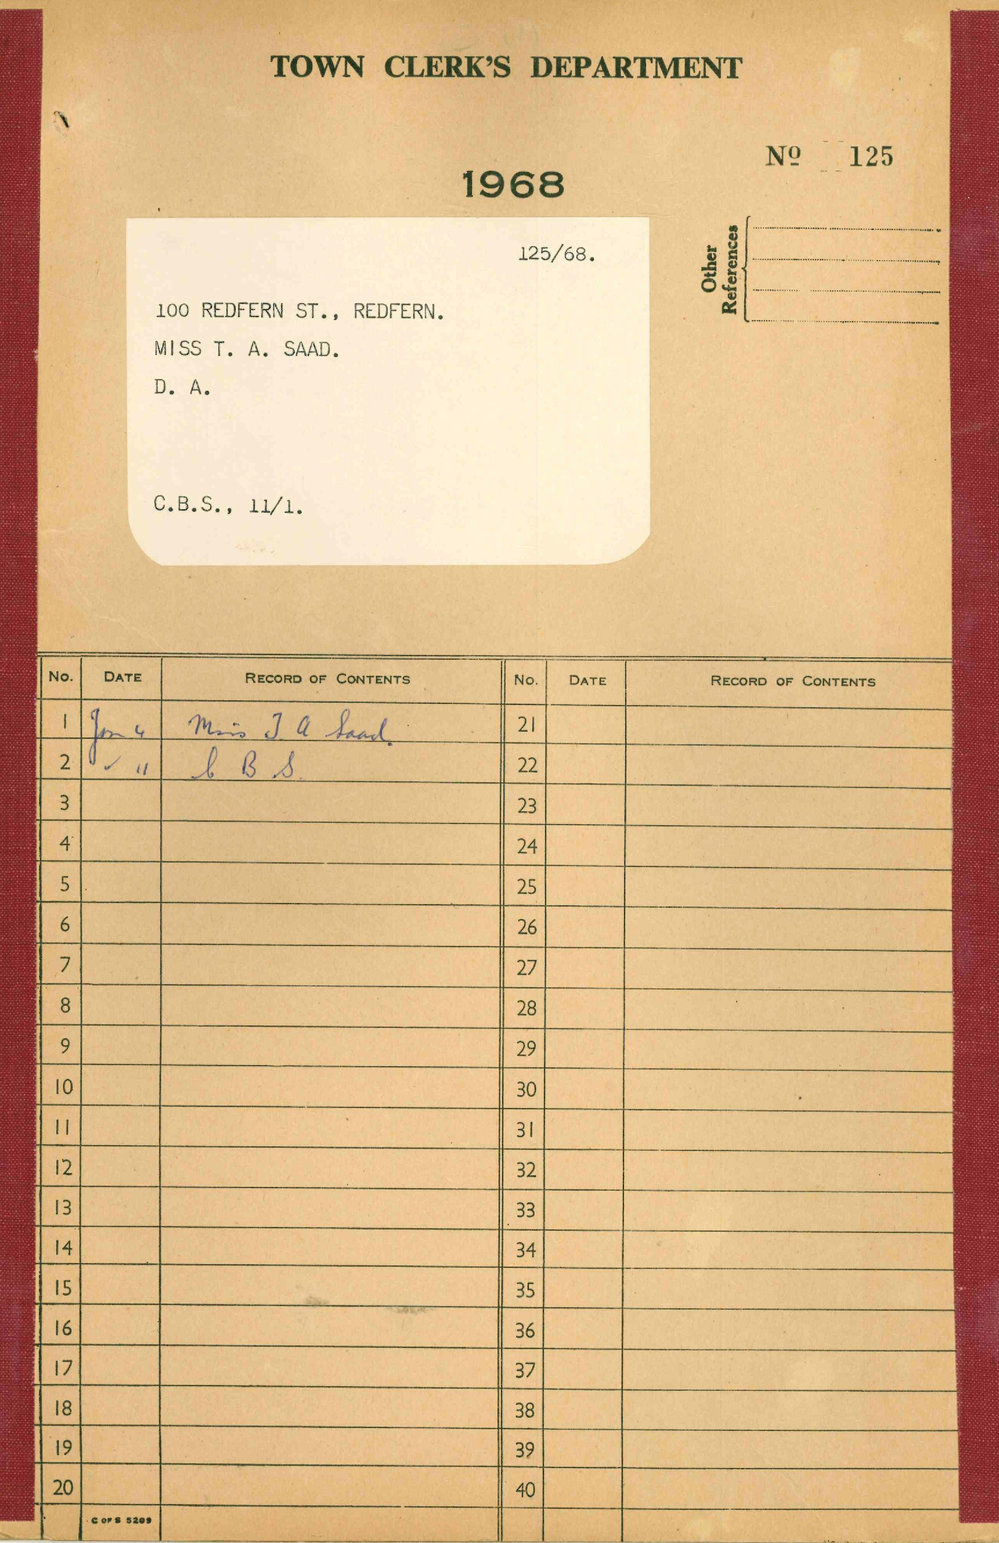 TOWN CLERK'S DEPARTMENT
Nº 125
1968
Other References
125/68.
100 REDFERN ST., REDFERN.
MISS T. A. SAAD.
D. A.
C.B.S., 11/1.
No. DATE RECORD OF CONTENTS No. DATE RECORD OF CONTENTS
1 Jan 4 Miss T A Saad. 21
2 " 11 C B S. 22
3 23
4 24
5 25
6 26
7 27
8 28
9 29
10 30
11 31
12 32
13 33
14 34
15 35
16 36
17 37
18 38
19 39
20 40
C OF S 5209